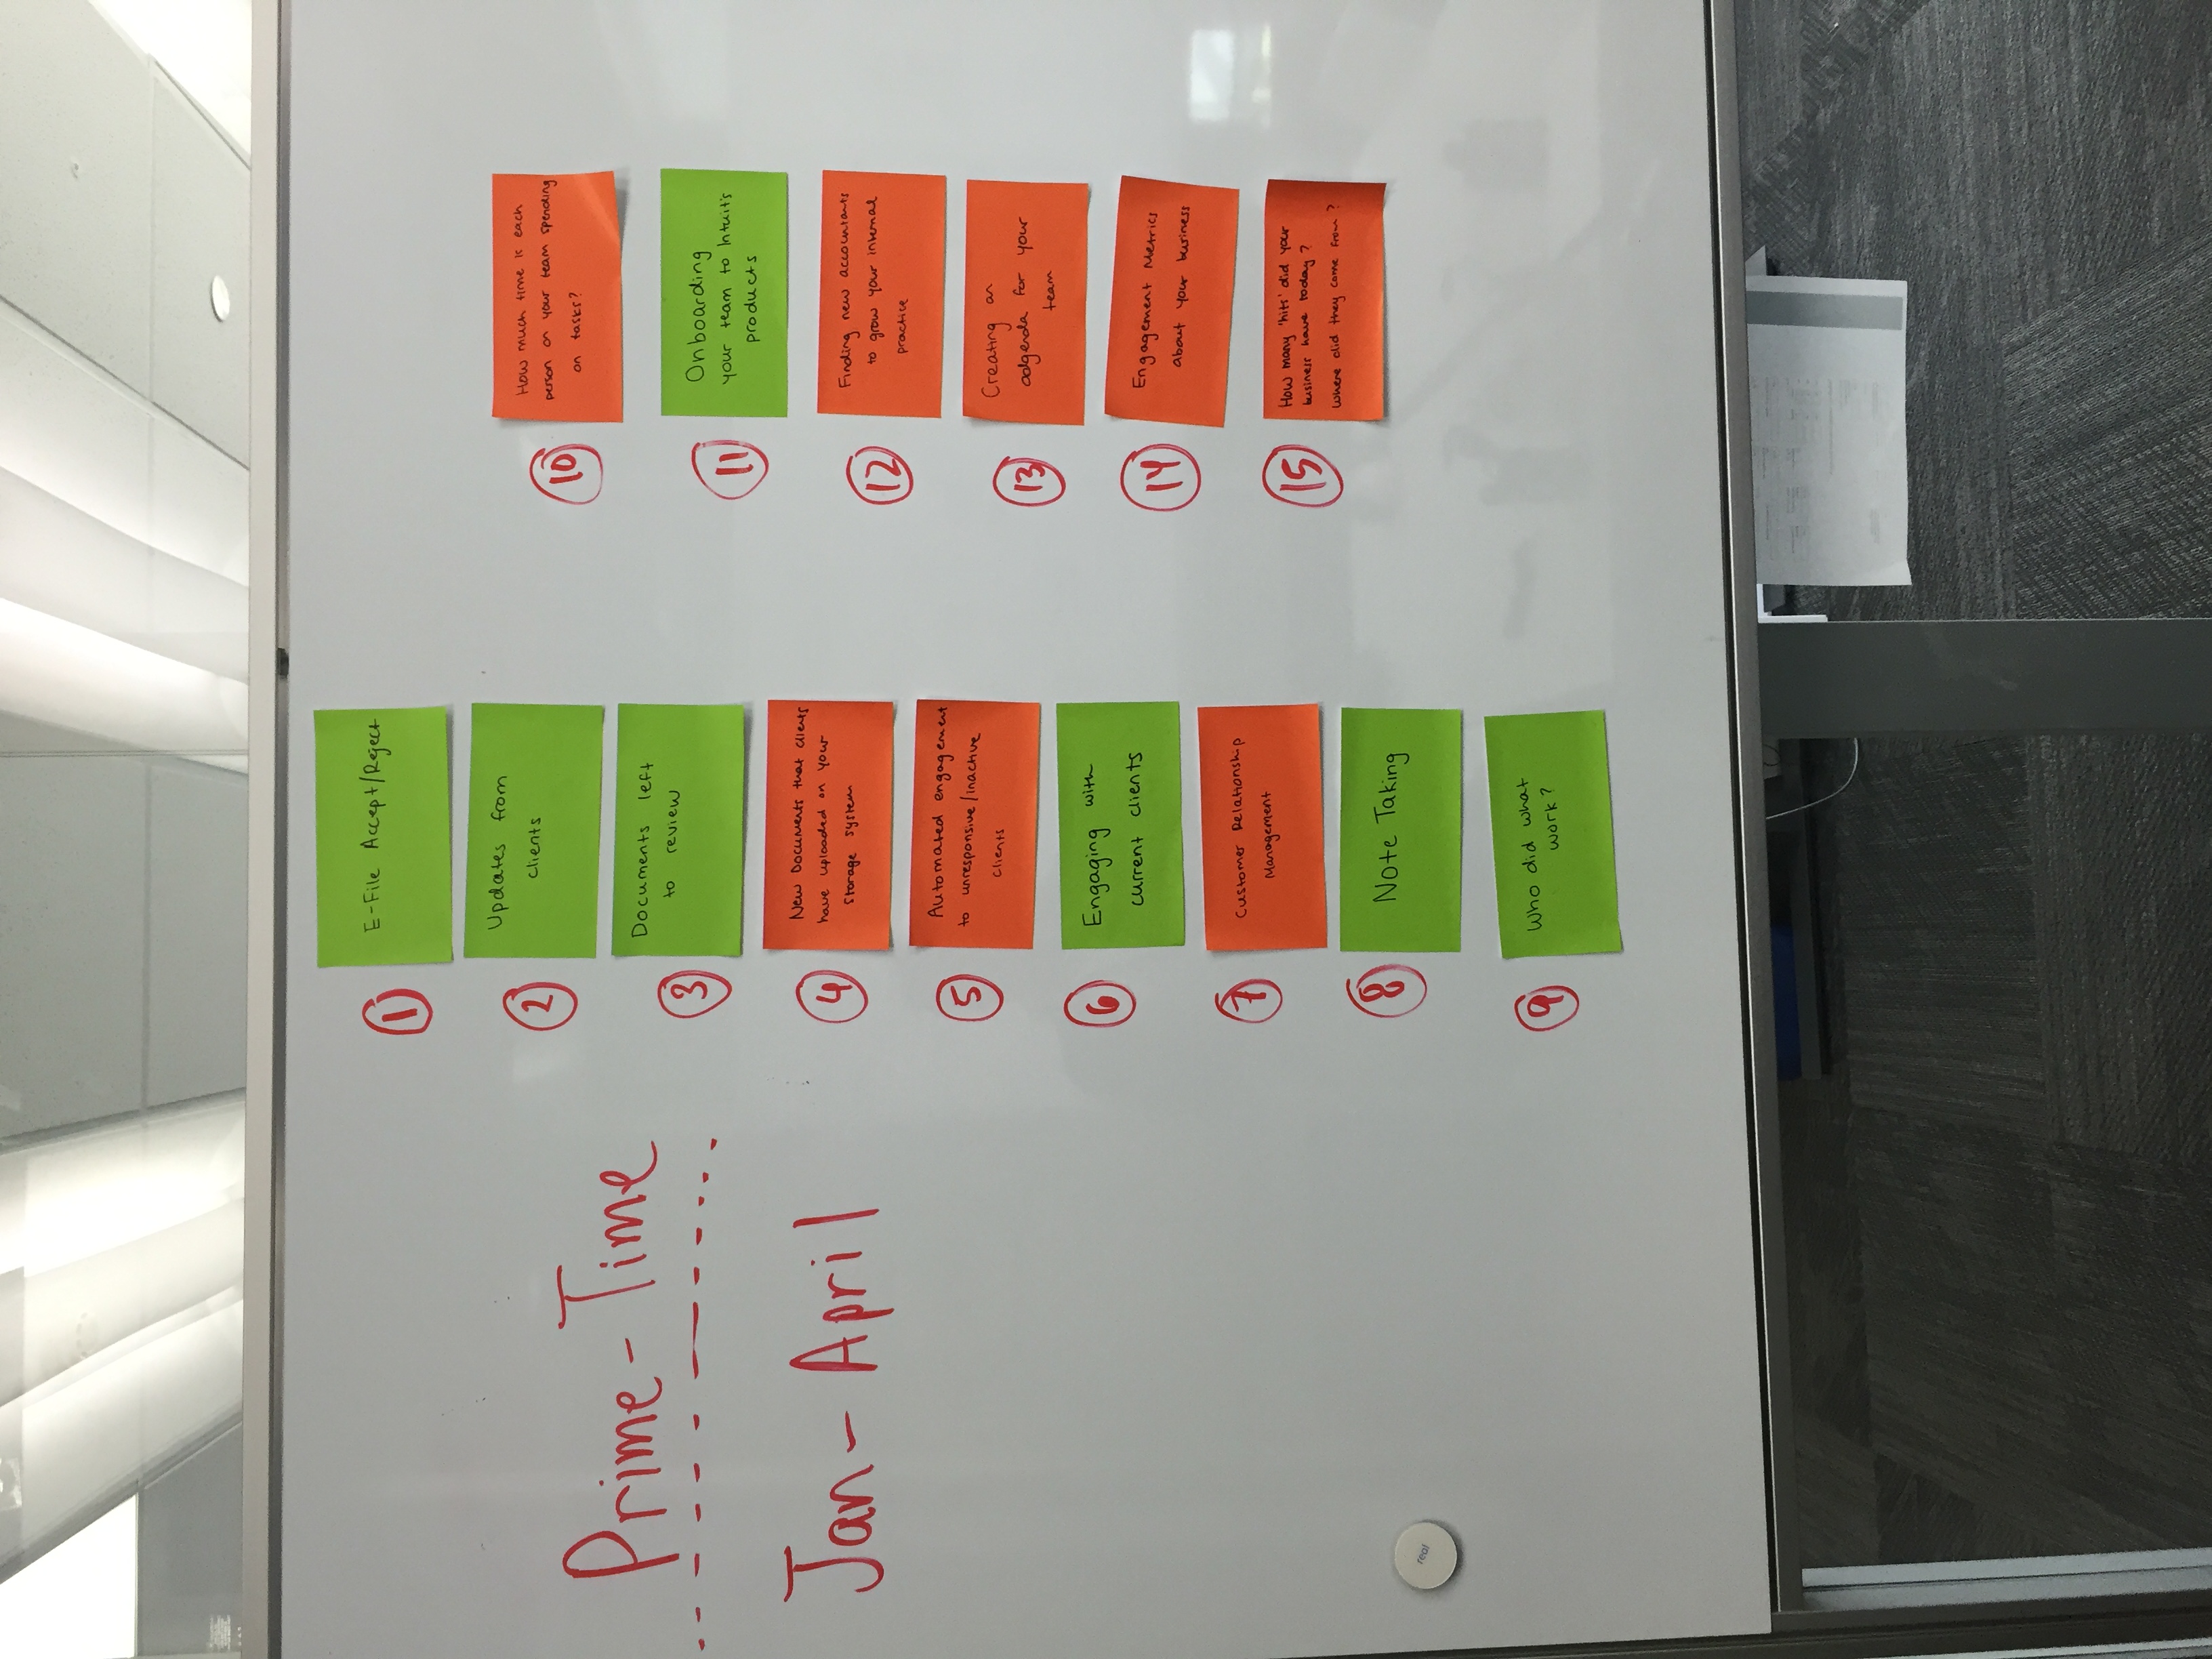 Prime-Time
Jan-April
1
E-File Accept/Reject
2
Updates from
clients
3
Documents left
to review
4
New Documents that clients
have uploaded on your
storage system
5
Automated engagement
to unresponsive/inactive
clients
6
Engaging with
current clients
7
Customer Relationship
Management
8
Note Taking
9
Who did what
work?
10
How much time is each
person on your team spending
on tasks?
11
Onboarding
your team to Intuit's
products
12
Finding new accountants
to grow your internal
practice
13
Creating an
adgenda for your
team
14
Engagement Metrics
about your business
15
How many 'hits' did your
business have today?
Where did they come from?
real